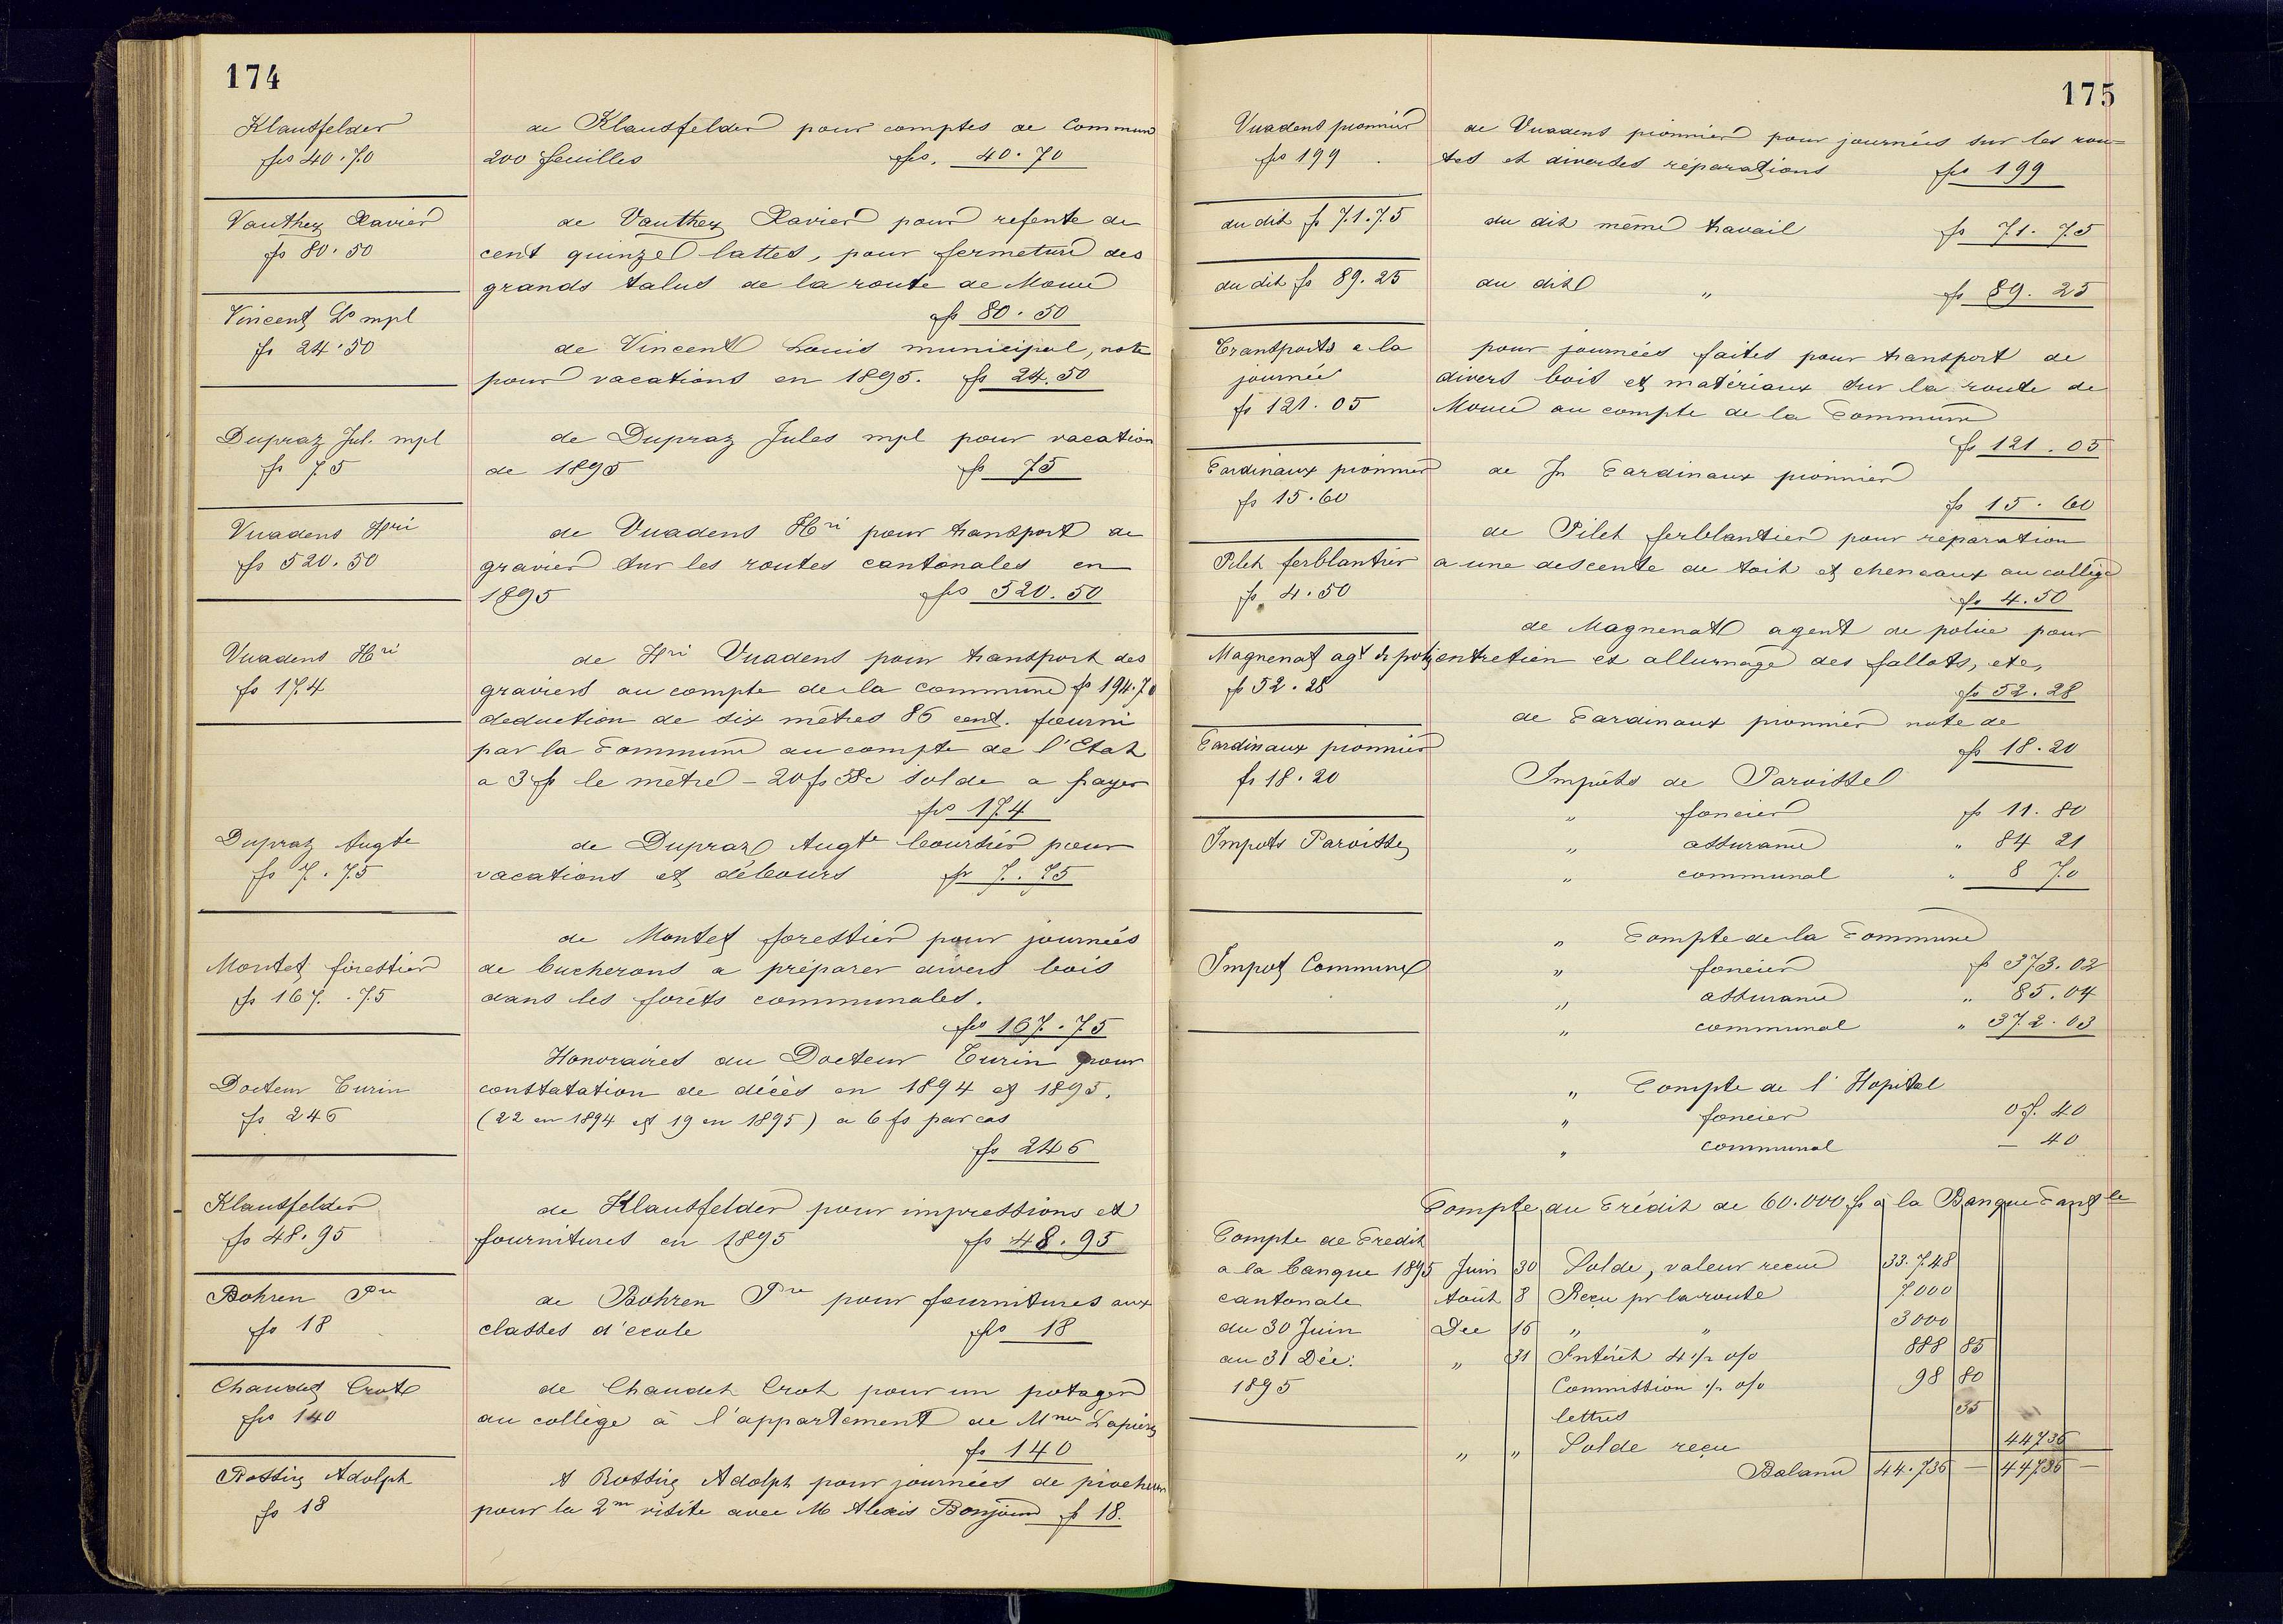 174
Klausfelder
frs 40.70
de Klausfelder pour comptes de Commune
200 feuilles frs. 40.70
Vauthey Xavier
fs 80.50
de Vauthey Xavier pour refente de
cent quinze lattes, pour fermeture des
grands talus de la route de Moué
fs 80.50
Vincent Ls mpl
fs 24.50
de Vincent Louis municipal, note
pour vacations en 1895. fs 24.50
Dupraz Jul. mpl
fs 75
de Dupraz Jules mpl pour vacation
de 1895 fs 75
Vuadens Hri
fs 520.50
de Vuadens Hri pour transport de
gravier sur les routes cantonales en
1895 frs 520.50
Vuadens Hri
fs 174
de Hri Vuadens pour transport des
graviers au compte de la commune fs 194.70
deduction de six mètres 86 cent. fourni
par la Commune au compte de l'Etat
a 3 fs le mètre - 20 fs 58c solde a payer
frs 174
Dupraz Augte
fs 7.75
de Dupraz Augte boursier pour
vacations et débours fr 7.75
Montet forestier
fs 167.75
de Montet forestier pour journées
de bucherons a préparer divers bois
dans les forêts communales.
frs 167.75
Docteur Turin
fs 246
Honoraires du Docteur Turin pour
constatation de décès en 1894 et 1895.
(22 en 1894 et 19 en 1895) a 6 fs par cas
fs 246
Klausfelder
fs 48.95
de Klausfelder pour impressions et
fournitures en 1895 fs 48.95
Bohren Pre
fs 18
de Bohren Pre pour fournitures aux
classes d'ecole frs 18
Chaudet Crot
frs 140
de Chaudet Crot pour un potager
au collège à l'appartement de Mme Lapierre
fs 140
Rossier Adolph
fs 18
A Rossier Adolph pour journées de piocheur
pour la 2me visite avec M Alexis Bonjour fs 18.
175
Vuadens pionnier
fs 199
de Vuadens pionnier pour journées sur les rou=
tes et diverses réparations frs 199
du dit fs 71.75
du dit même travail fs 71.75
du dit fs 89.25
du dit " fs 89.25
Transports a la
journée
fs 121.05
pour journées faites pour transport de
divers bois et matériaux sur la route de
Moué au compte de la Commune
fs 121.05
Cardinaux pionnier
fs 15.60
de Jn Cardinaux pionnier
fs 15.60
Pilet ferblantier
fs. 4.50
de Pilet ferblantier pour réparation
a une descente de toit et cheneaux au collège
fs 4.50
Magnenat agt de police
fs 52.28
de Magnenat agent de police pour
entretien et allumage des fallots, etc,
fs 52.28
Cardinaux pionnier
fs 18.20
de Cardinaux pionnier note de
fs 18.20
Impots Paroisse
Impôts de Paroisse
" foncier fs 11.80
" assurance " 84 21
" communal " 8 70
Impot Commune
" Compte de la Commune
" foncier fs 373.02
" assurance " 85.04
" communal " 372.03
" Compte de l'Hopital
" foncier 0f. 40
" communal — 40
Compte du Crédit de 60.000 fs à la Banque Cantle
Compte de Credit
a la banque 1895
cantonale
du 30 Juin
au 31 Déc:
1895
Juin 30 Solde, valeur recue 33.748
Aout 8 Reçu pr la route 7000
Dec 16 " " 3000
" 31 Intérêt 4 1/2 o/o 888 85
Commission 1/2 o/o 98 80
lettres 35
" " Solde reçu 44736
Balance 44.736 — 44736 —